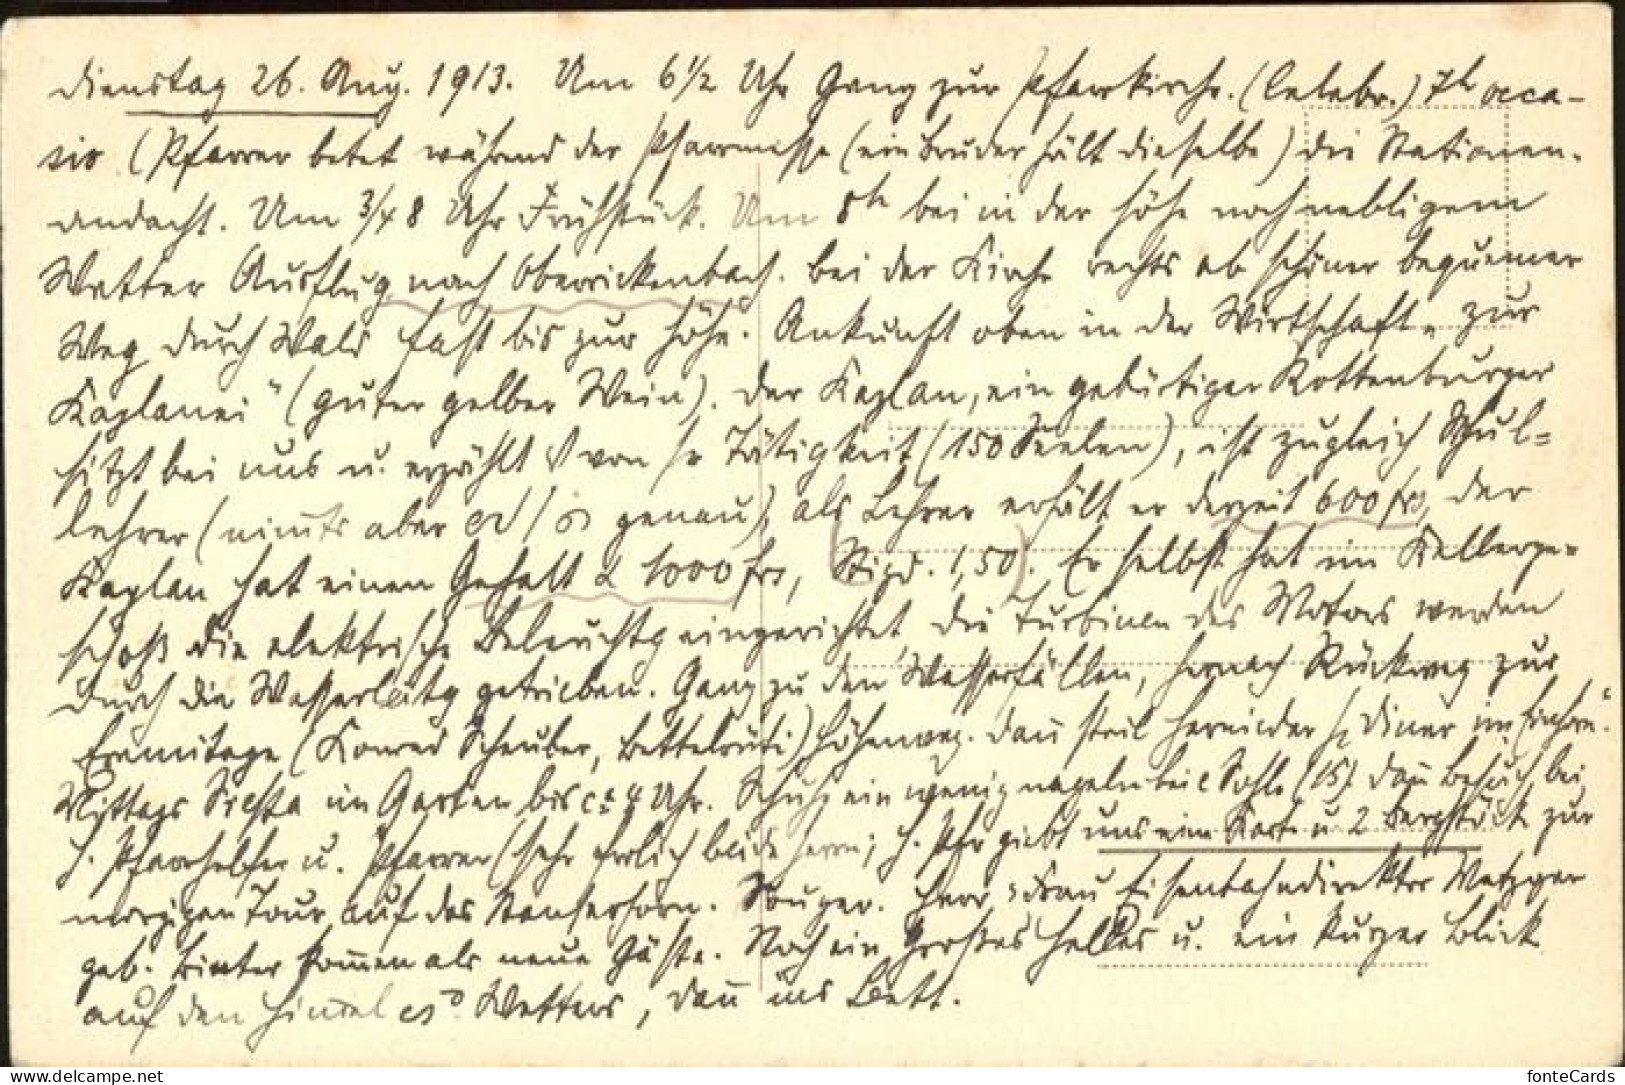 Dienstag 26. Aug. 1913. Um 6 1/2 Uhr Gang zur Pfarrkirche. (Celebr.) 7h occa-
sio (Pfarrer betet während der Pfarrmesse (ein Bruder hält dieselbe) die Stationen-
andacht. Um 3/4 8 Uhr Frühstück. Um 8h bei in der Höhe noch nebligem
Wetter Ausflug nach Oberrickenbach. Bei der Kirche rechts ab schöner bequemer
Weg durch Wald fast bis zur Höhe. Ankunft oben in der Wirtschaft „zur
Kaplanei" (guter gelber Wein). Der Kaplan, ein gebürtiger Rottenburger
sitzt bei uns u. erzählt von Tätigkeit (150 Seelen), ist zugleich Schul=
lehrer (nimts aber genau), als Lehrer erhält er derzeit 600 frs, der
Kaplan hat einen Gehalt 1000 frs, (Stipd. 1,50). Er selbst hat im Kellerge-
schoß die elektrische Beleuchtg eingerichtet, die Turbinen des Motors werden
durch die Wasserleitg getrieben. Gang zu den Wasserfällen, hernach Rückweg zur
Ermitage (Konrad Scheuber, Bettelrüti) Höhenweg. Dañ steil hernieder Diner im Einhorn".
Mittags Siesta im Garten bis ca 4 Uhr. Schuh ein wenig nageln bei Sohle (15). Dañ Besuch bei
H. Pfarrhelfer u. Pfarrer (sehr beide Herrn; H. Pfr giebt uns eine Karte u 2 Bergstöck zur
morgigen Tour auf das Stanserhorn. Souper. Herr Frau Eisenbahndirektor Metzger
geb. Binter kom̃en als neue Gäste. Noch ein Großes Helles u. ein kurzer Blick
auf den Himel Wetters, dañ ins Bett.
www.delcampe.net
fonteCards